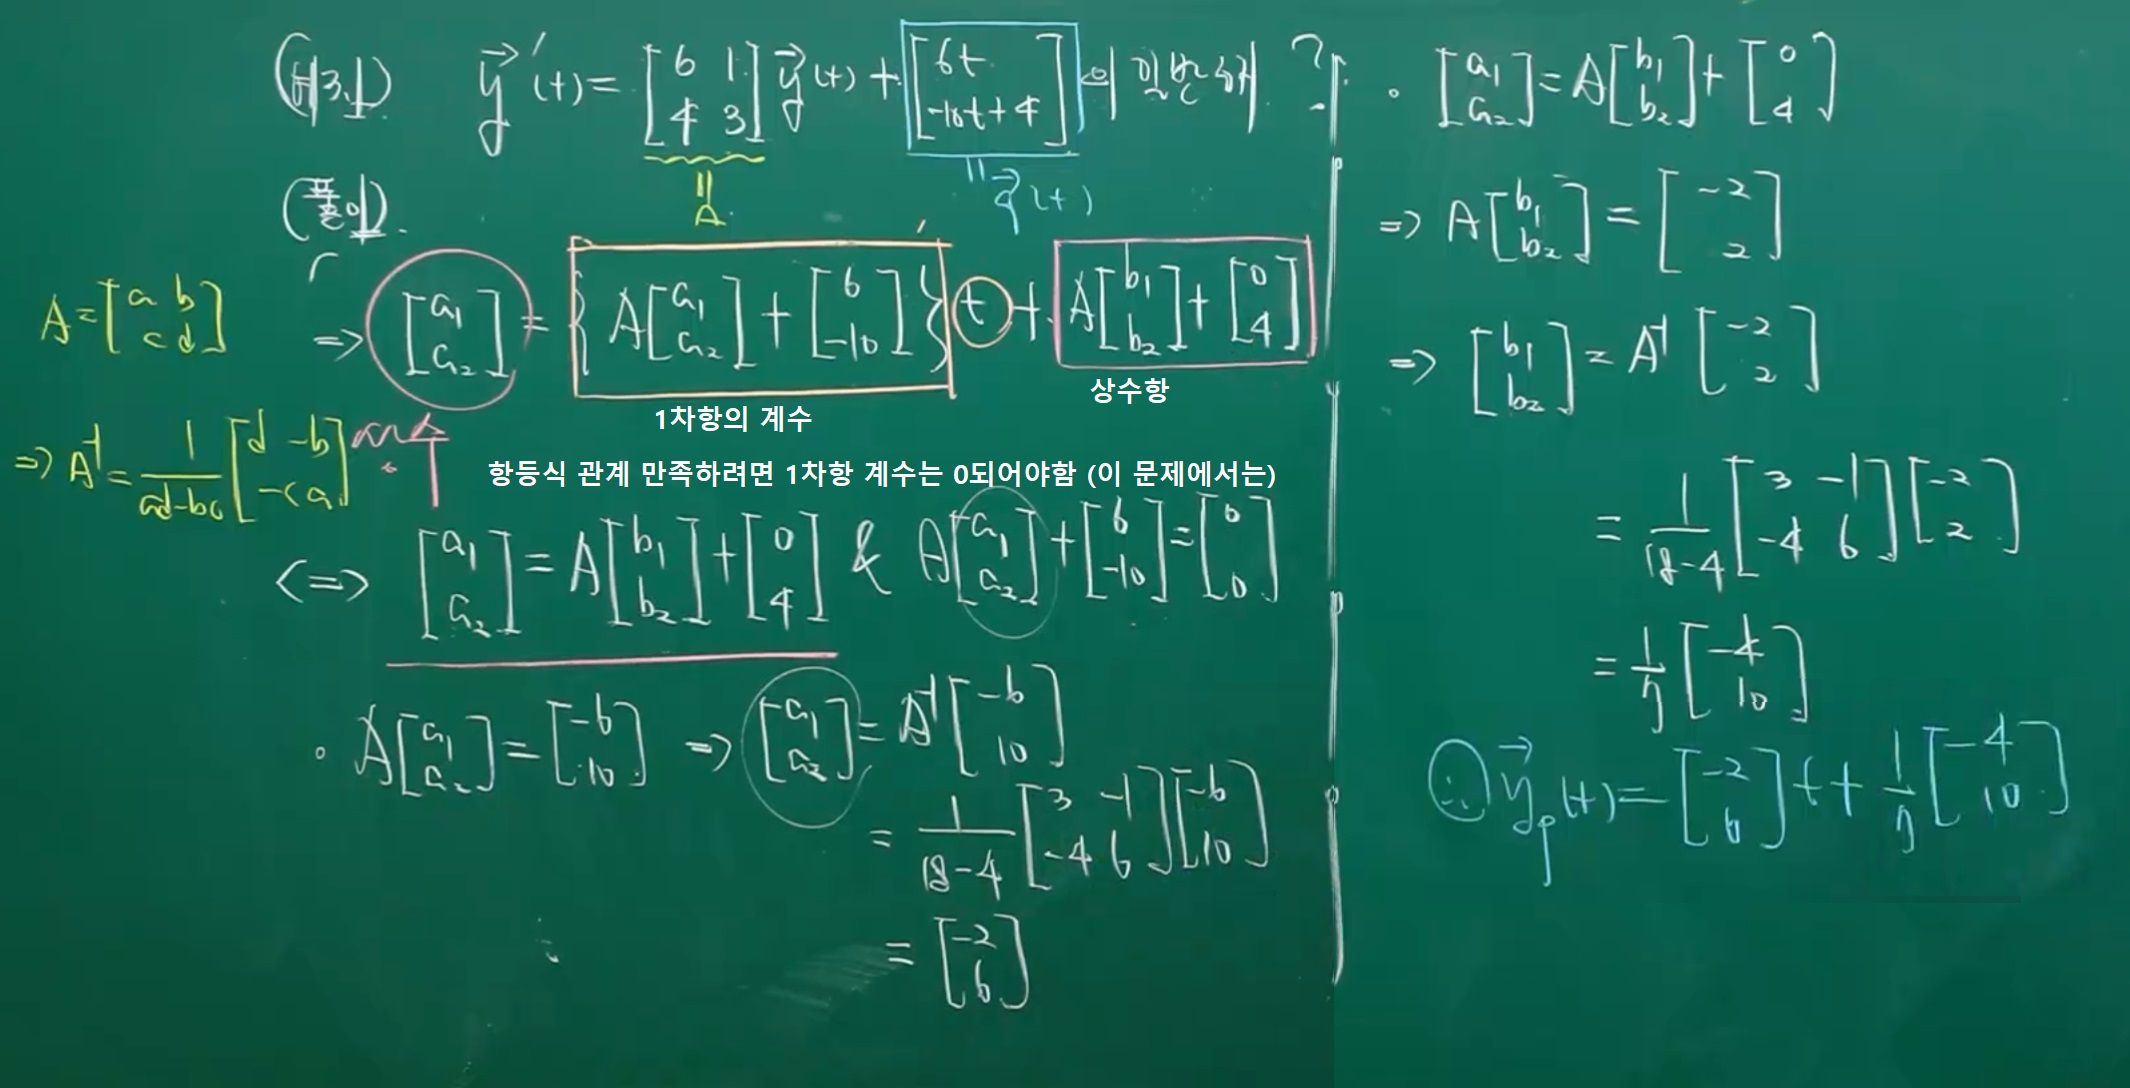 (예3.1) y⃗′(t) = [6 1; 4 3] y⃗(t) + [6t; -10t+4] 의 일반해 ?
= A
= q⃗(t)
(풀이).
⇒ [a₁; a₂] = { A[a₁; a₂] + [6; -10] } t + A[b₁; b₂] + [0; 4]
1차항의 계수
상수항
항등식 관계 만족하려면 1차항 계수는 0되어야함 (이 문제에서는)
A = [a b; c d]
⇒ A⁻¹ = 1/(ad-bc) [d -b; -c a]
⟨=⟩ [a₁; a₂] = A[b₁; b₂] + [0; 4] & A[a₁; a₂] + [6; -10] = [0; 0]
• A[a₁; a₂] = [-6; 10] ⇒ [a₁; a₂] = A⁻¹[-6; 10]
= 1/(18-4) [3 -1; -4 6][-6; 10]
= [-2; 6]
• [a₁; a₂] = A[b₁; b₂] + [0; 4]
⇒ A[b₁; b₂] = [-2; 2]
⇒ [b₁; b₂] = A⁻¹[-2; 2]
= 1/(18-4) [3 -1; -4 6][-2; 2]
= 1/7 [-4; 10]
∴ y⃗p(t) = [-2; 6] t + 1/7 [-4; 10]